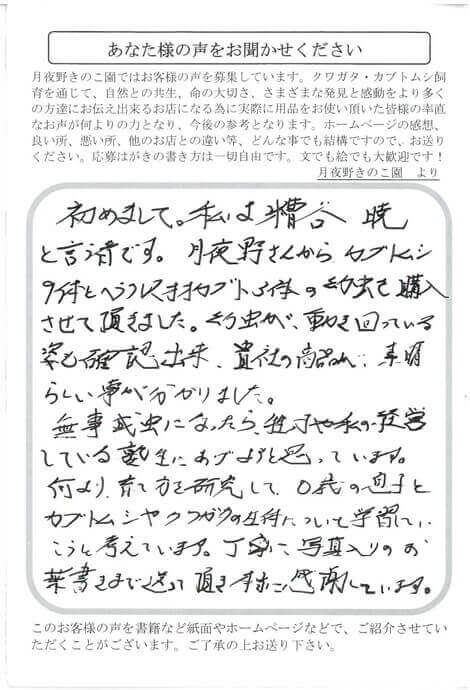 あなた様の声をお聞かせください
月夜野きのこ園ではお客様の声を募集しています。クワガタ・カブトムシ飼
育を通じて、自然との共生、命の大切さ、さまざまな発見と感動をより多く
の方達にお伝え出来るお店になる為に実際に用品をお使い頂いた皆様の率直
なお声が何よりの力となり、今後の参考となります。ホームページの感想、
良い所、悪い所、他のお店との違い等、どんな事でも結構ですので、お送り
ください。応募はがきの書き方は一切自由です。文でも絵でも大歓迎です！
月夜野きのこ園 より
初めまして。私は糟谷 暁
と言う者です。月夜野さんから カブトムシ
9体とヘラクレスオオカブト3体の幼虫を購入
させて頂きました。幼虫が、動き回っている
姿も確認出来、貴社の商品が、素晴
らしい事が分かりました。
無事成虫になったら、 や私の経営
している塾生にあげようと思っています。
何より、育て方を研究して、0歳の息子と
カブトムシやクワガタの生体について学習してい
こうと考えています。丁寧に写真入りのお
葉書きまで送って頂き 感謝しています。
このお客様の声を書籍など紙面やホームページなどで、ご紹介させてい
ただくことがございます。ご了承の上お送り下さい。